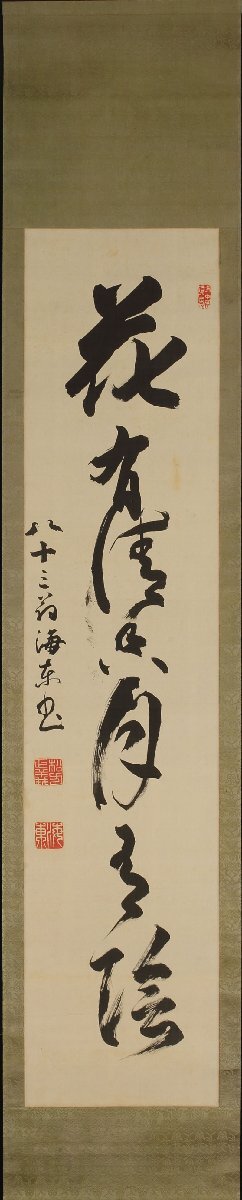 花有清香月有陰
八十三翁海東書
海東